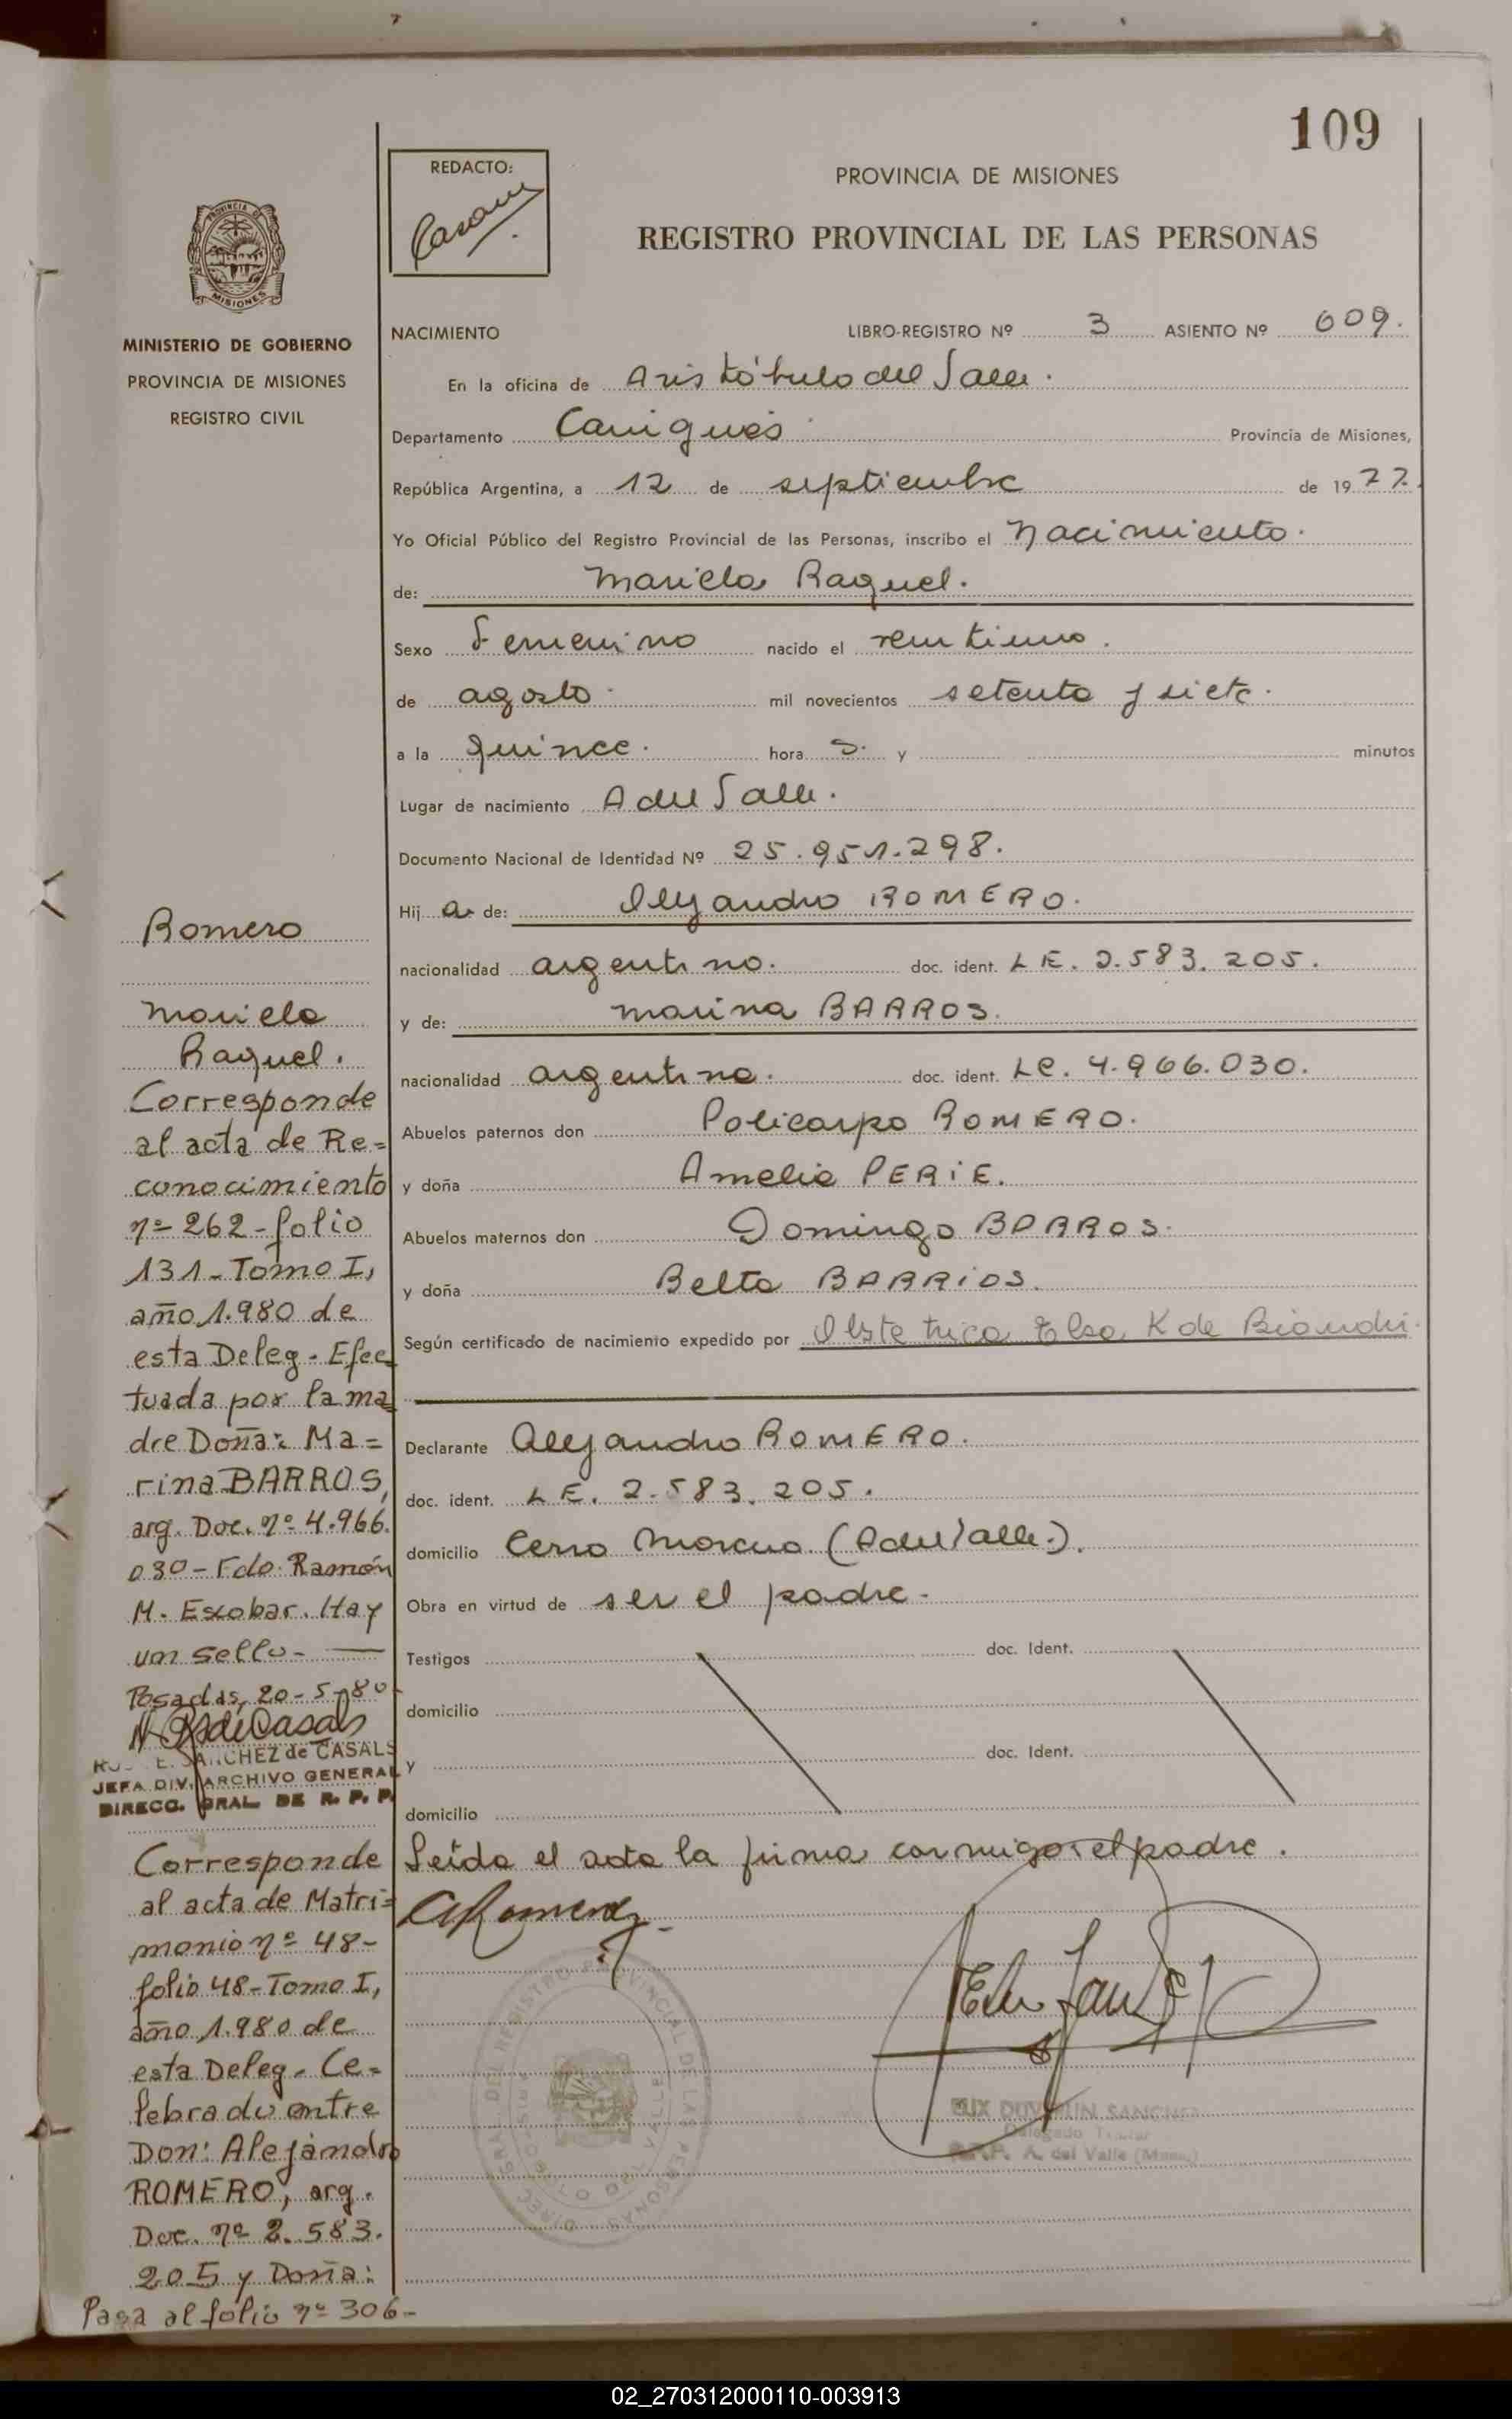 109
REDACTO:
PROVINCIA DE MISIONES
REGISTRO PROVINCIAL DE LAS PERSONAS
PROVINCIA DE
MISIONES
MINISTERIO DE GOBIERNO
PROVINCIA DE MISIONES
REGISTRO CIVIL
NACIMIENTO LIBRO-REGISTRO Nº 3 ASIENTO Nº 609.
En la oficina de Aristóbulo del Valle.
Departamento Cainguás Provincia de Misiones,
República Argentina, a 12 de septiembre de 1977.
Yo Oficial Público del Registro Provincial de las Personas, inscribo el Nacimiento.
de: Mariela Raquel.
Sexo Femenino nacido el veintiuno.
de agosto. mil novecientos setenta y siete.
a la quince. hora s. y minutos
Lugar de nacimiento A del Valle.
Documento Nacional de Identidad Nº 25.951.298.
Hij a de: Alejandro ROMERO.
nacionalidad argentino. doc. ident. LE. 2.583.205.
y de: Marina BARROS.
nacionalidad argentina. doc. ident. LC. 4.966.030.
Abuelos paternos don Policarpo ROMERO.
y doña Amelia PERIE.
Abuelos maternos don Domingo BARROS.
y doña Belta BARRIOS.
Según certificado de nacimiento expedido por Obstetrica Elsa K de Biondi.
Declarante Alejandro ROMERO.
doc. ident. LE. 2.583.205.
domicilio Cerro Moreno (A del Valle.).
Obra en virtud de ser el padre.
Testigos doc. Ident.
domicilio
y doc. Ident.
domicilio
Leída el acta la firma conmigo el padre.
ARomero
DIREC. GRAL. DEL REGISTRO PROVINCIAL DE LAS PERSONAS
DEL VALLE
SANCHEZ
Delegado Titular
R.P.P. A. del Valle (Mnes.)
Romero
Mariela
Raquel.
Corresponde
al acta de Re=
conocimiento
nº 262-folio
131-Tomo I,
año 1.980 de
esta Deleg. Efec
tuada por la ma
dre Doña: Ma=
rina BARROS,
arg. Doc. nº 4.966.
030-Fdo. Ramón
M. Escobar. Hay
un sello.-
Posadas, 20-5-80
SANCHEZ de CASALS
JEFA DIV. ARCHIVO GENERAL
DIRECC. GRAL DE R. P. P.
Corresponde
al acta de Matri=
monio nº 48-
folio 48-Tomo I,
año 1.980 de
esta Deleg. Ce=
lebrado entre
Don: Alejandro
ROMERO, arg.
Doc. nº 2.583.
205 y Doña:
Pasa al folio nº 306-
02_270312000110-003913